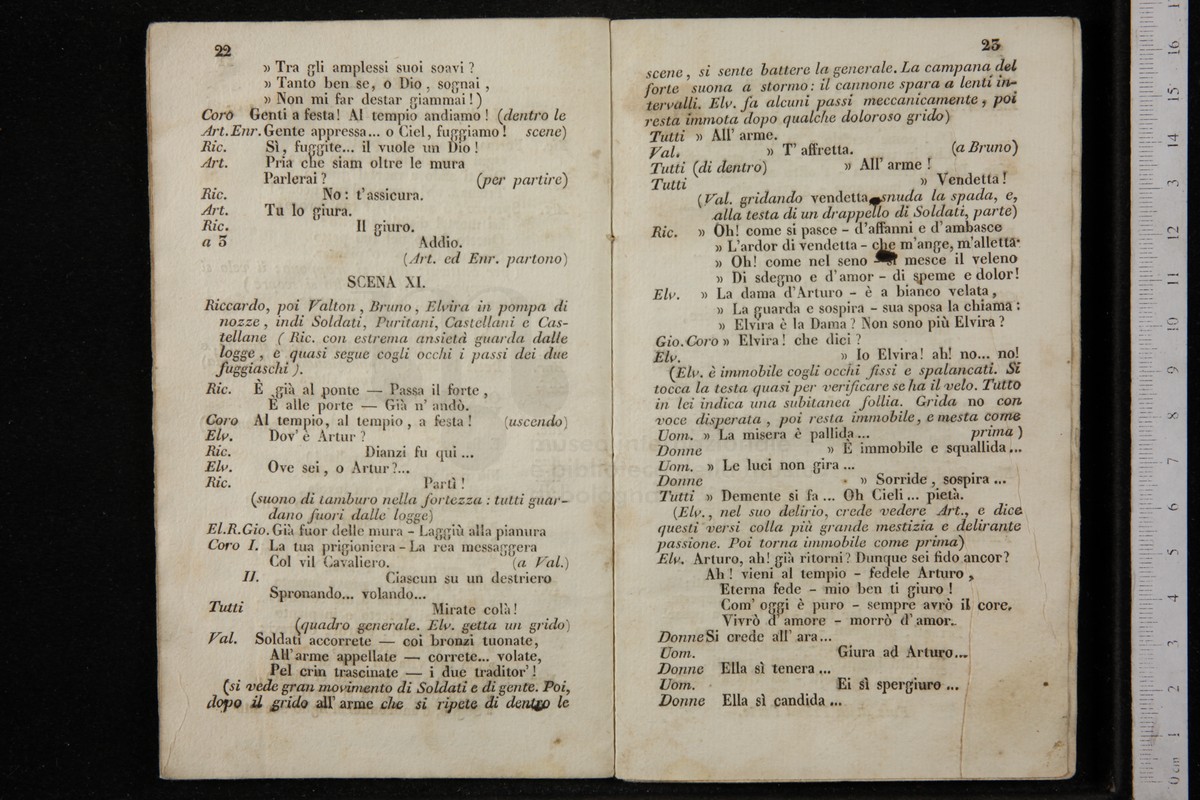 22
» Tra gli amplessi suoi soavi ?
» Tanto ben se, o Dio, sognai,
» Non mi far destar giammai!)
Coro Genti a festa! Al tempio andiamo! (dentro le
Art.Enr. Gente appressa... o Ciel, fuggiamo! scene)
Ric. Sì, fuggite... il vuole un Dio!
Art. Pria che siam oltre le mura
Parlerai? (per partire)
Ric. No: t'assicura.
Art. Tu lo giura.
Ric. Il giuro.
a 3 Addio.
(Art. ed Enr. partono)
SCENA XI.
Riccardo, poi Valton, Bruno, Elvira in pompa di
nozze, indi Soldati, Puritani, Castellani e Cas-
tellane ( Ric. con estrema ansietà guarda dalle
logge, e quasi segue cogli occhi i passi dei due
fuggiaschi ).
Ric. È già al ponte — Passa il forte,
È alle porte — Già n' andò.
Coro Al tempio, al tempio, a festa! (uscendo)
Elv. Dov' è Artur?
Ric. Dianzi fu qui...
Elv. Ove sei, o Artur?...
Ric. Partì!
(suono di tamburo nella fortezza: tutti guar-
dano fuori dalle logge)
El.R.Gio. Già fuor delle mura - Laggiù alla pianura
Coro I. La tua prigioniera - La rea messaggera
Col vil Cavaliero. (a Val.)
II. Ciascun su un destriero
Spronando... volando...
Tutti Mirate colà!
(quadro generale. Elv. getta un grido)
Val. Soldati accorrete — coi bronzi tuonate,
All' arme appellate — correte... volate,
Pel crin trascinate — i due traditor'!
(si vede gran movimento di Soldati e di gente. Poi,
dopo il grido all' arme che si ripete di dentro le
23
scene, si sente battere la generale. La campana del
forte suona a stormo: il cannone spara a lenti in-
tervalli. Elv. fa alcuni passi meccanicamente, poi
resta immota dopo qualche doloroso grido)
Tutti » All' arme.
Val. » T' affretta. (a Bruno)
Tutti (di dentro) » All' arme!
Tutti » Vendetta!
(Val. gridando vendetta snuda la spada, e,
alla testa di un drappello di Soldati, parte)
Ric. » Oh! come si pasce - d'affanni e d'ambasce
» L'ardor di vendetta - che m'ange, m'alletta
» Oh! come nel seno - si mesce il veleno
» Di sdegno e d'amor - di speme e dolor!
Elv. » La dama d'Arturo - è a bianco velata,
» La guarda e sospira - sua sposa la chiama:
» Elvira è la Dama? Non sono più Elvira?
Gio.Coro » Elvira! che dici?
Elv. » Io Elvira! ah! no... no!
(Elv. è immobile cogli occhi fissi e spalancati. Si
tocca la testa quasi per verificare se ha il velo. Tutto
in lei indica una subitanea follia. Grida no con
voce disperata, poi resta immobile, e mesta come
Uom. » La misera è pallida... prima)
Donne » È immobile e squallida...
Uom. » Le luci non gira...
Donne » Sorride, sospira...
Tutti » Demente si fa... Oh Cieli... pietà.
(Elv., nel suo delirio, crede vedere Art., e dice
questi versi colla più grande mestizia e delirante
passione. Poi torna immobile come prima)
Elv. Arturo, ah! già ritorni? Dunque sei fido ancor?
Ah! vieni al tempio - fedele Arturo,
Eterna fede - mio ben ti giuro!
Com' oggi è puro - sempre avrò il core,
Vivrò d' amore - morrò d' amor.
Donne Si crede all' ara...
Uom. Giura ad Arturo...
Donne Ella sì tenera...
Uom. Ei sì spergiuro...
Donne Ella sì candida...